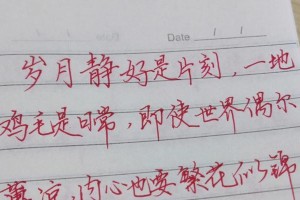 Date / /
岁月静好是片刻，一地
鸡毛是日常，即使世界偶尔
薄凉，内心也要繁花似锦